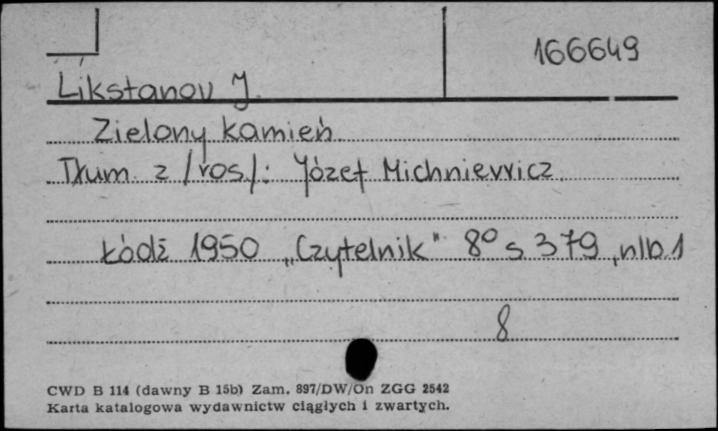 166649
Likstanov J.
Zielony kamień
Tłum. z /ros./: Józef Michniewicz.
Łódź 1950 „Czytelnik" 8° s 379, nlb. 1
8
CWD B 114 (dawny B 15b) Zam. 897/DW/On ZGG 2542
Karta katalogowa wydawnictw ciągłych i zwartych.